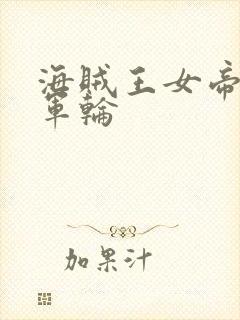 海贼王女帝
軍輪
加果汁